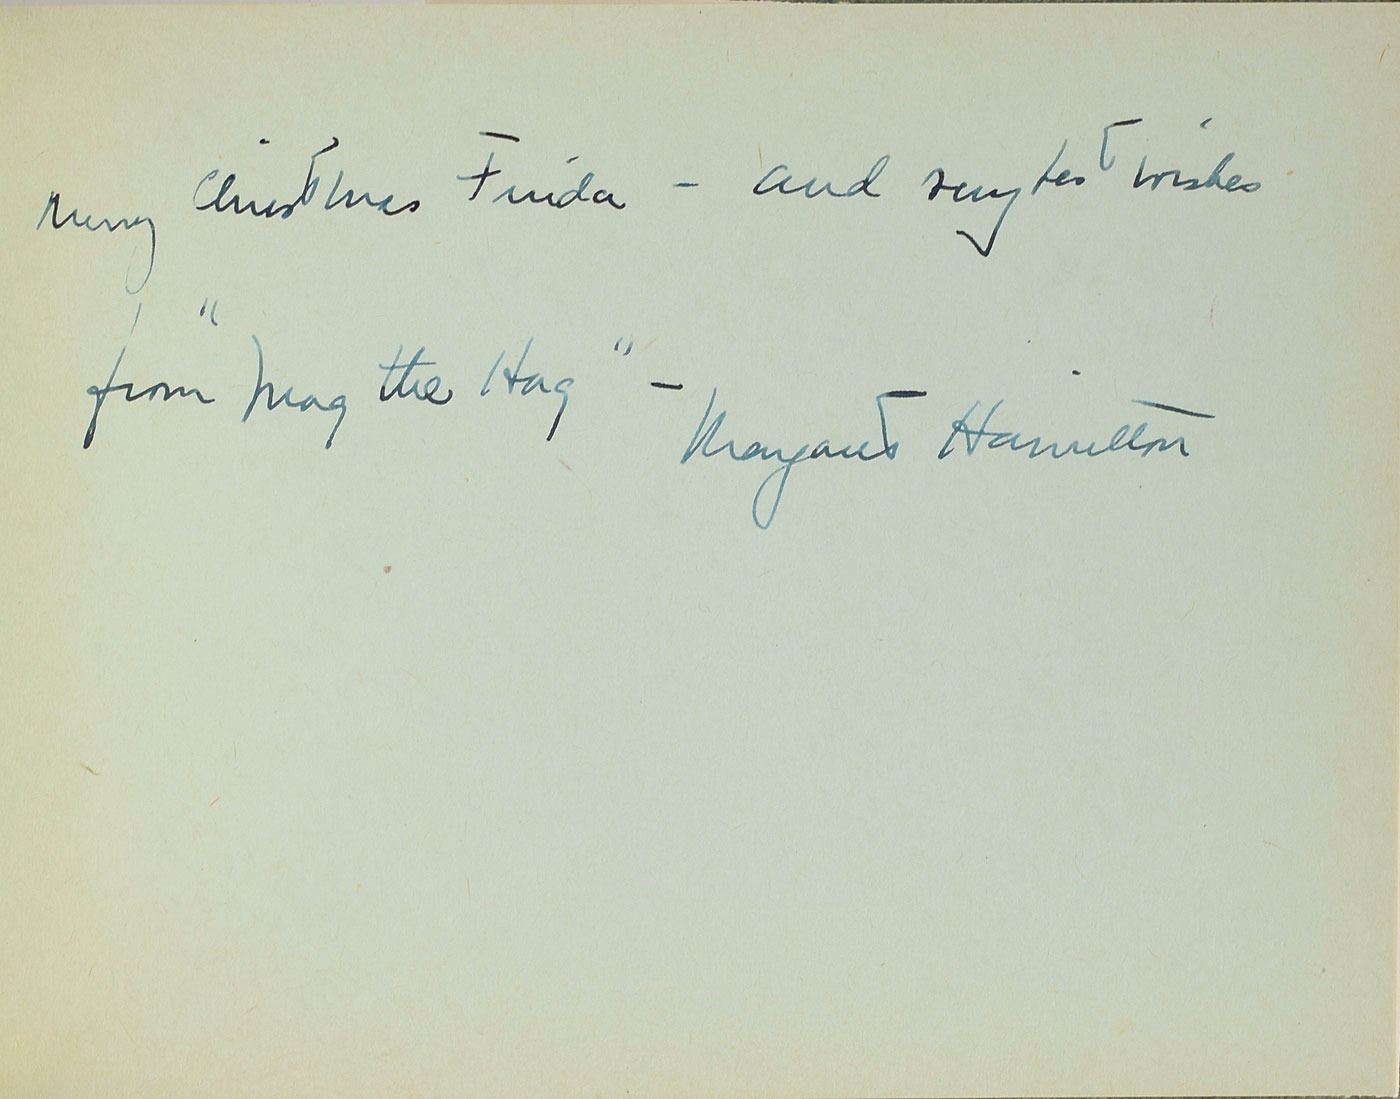 Merry Christmas Frieda - and very best wishes
from "Mag the Hag" -
Margaret Hamilton